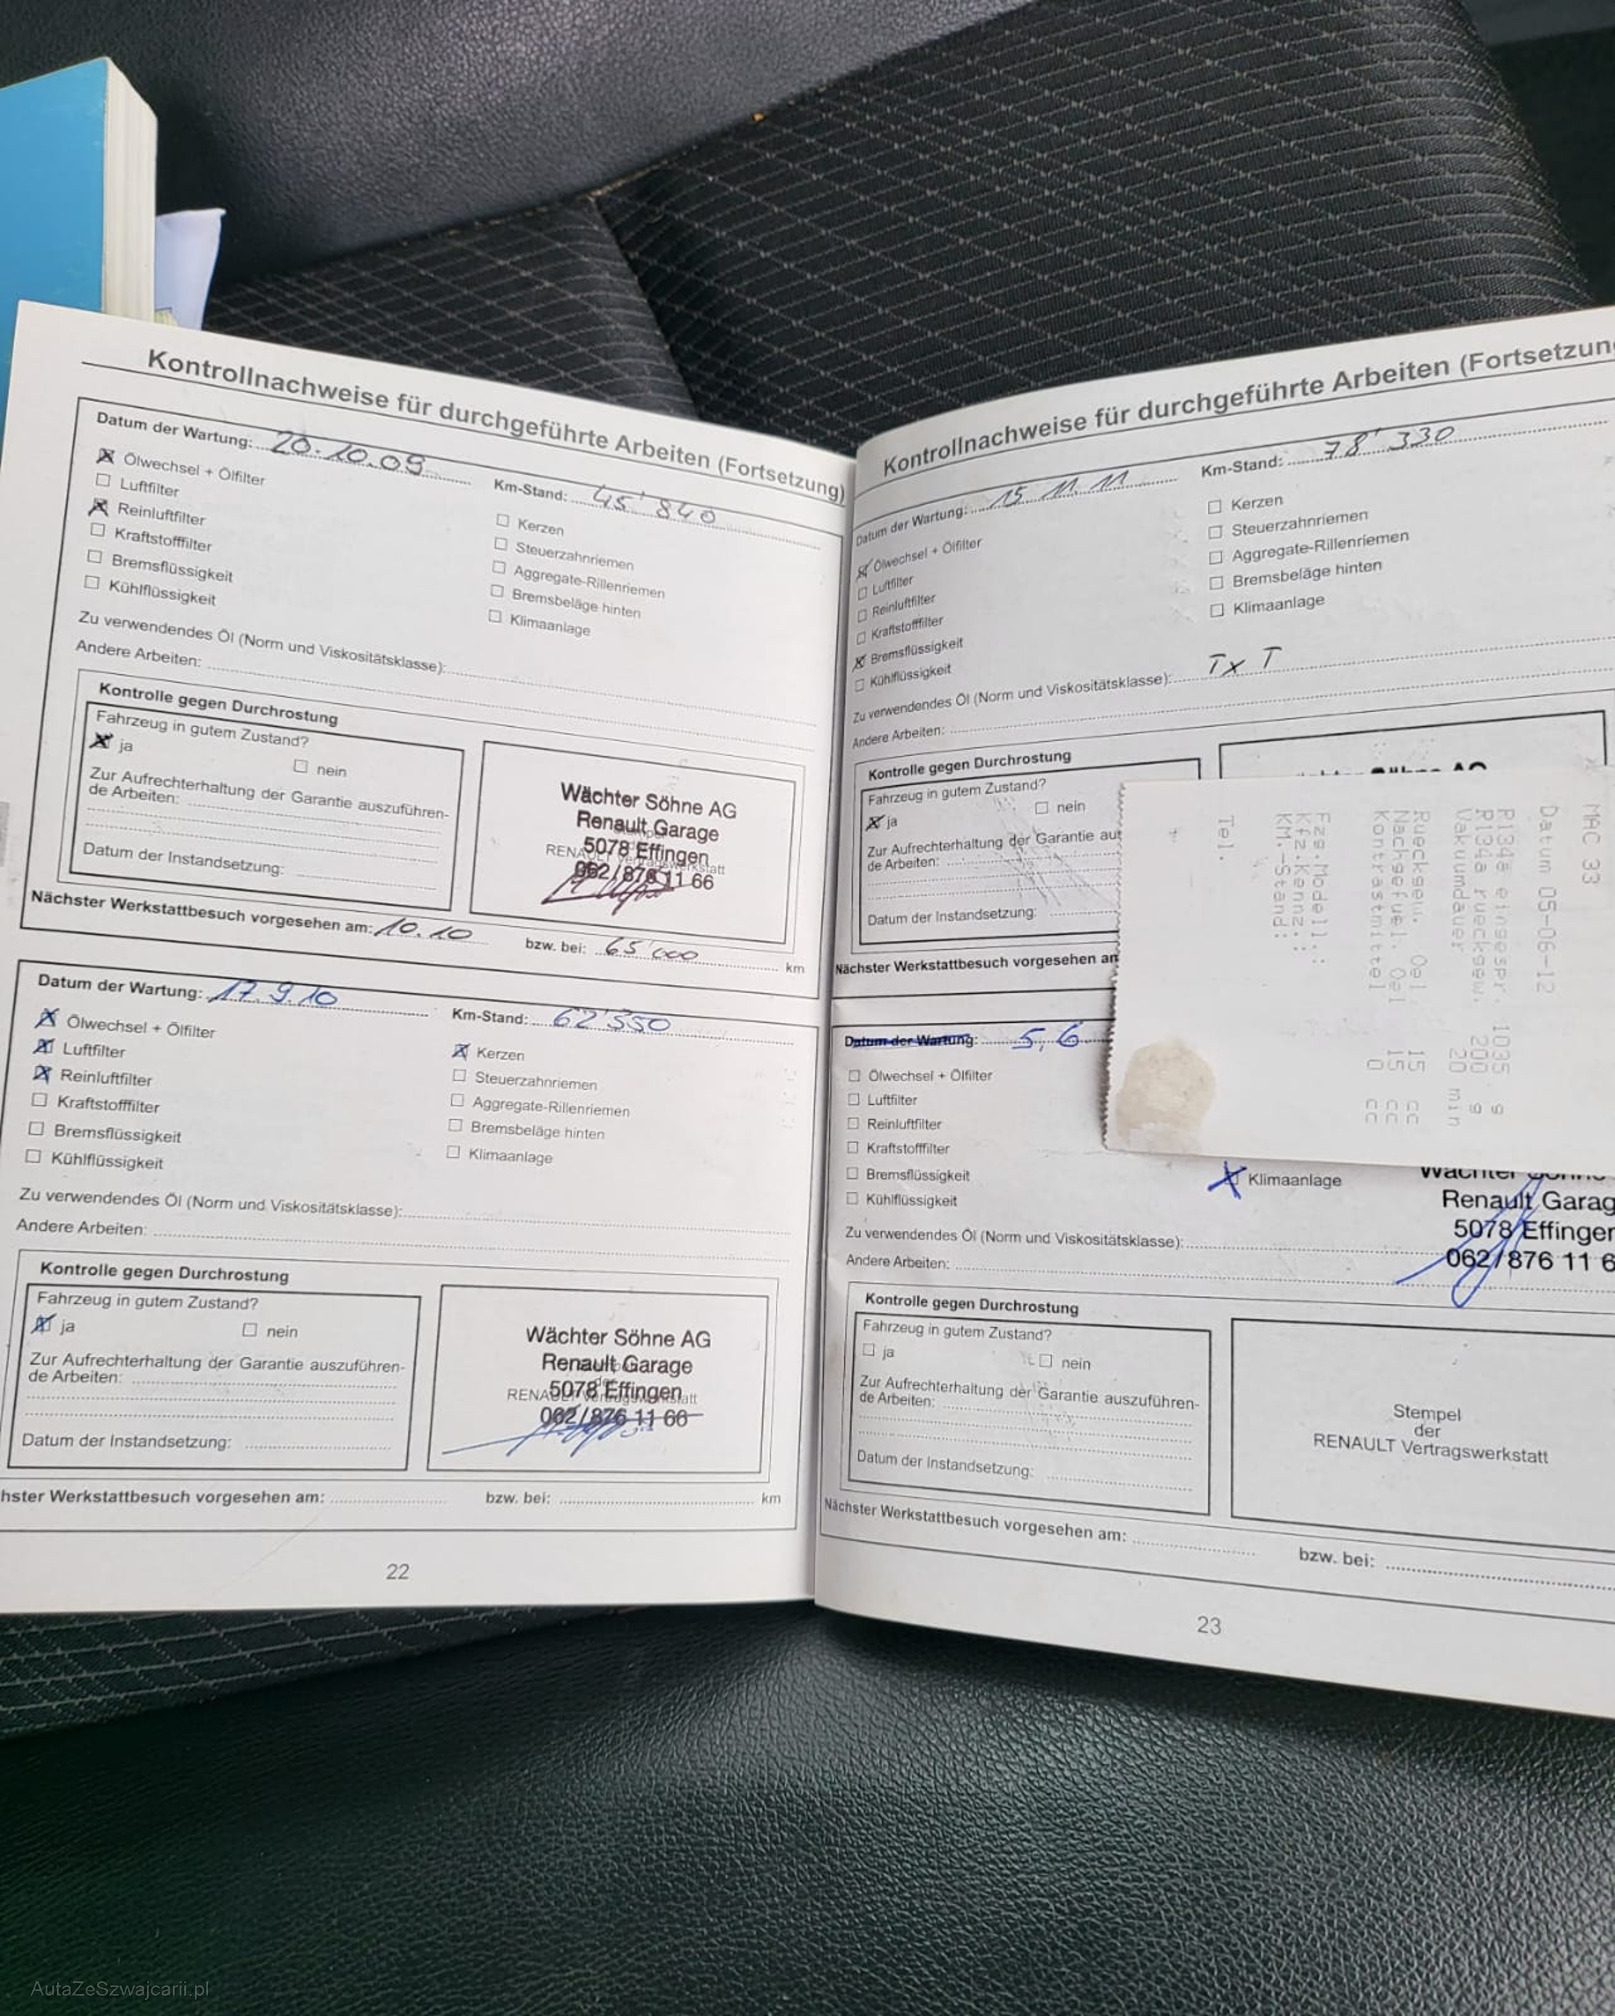 Kontrollnachweise für durchgeführte Arbeiten (Fortsetzung)
Datum der Wartung: 20.10.09
Km-Stand: 45'840
Ölwechsel + Ölfilter
Luftfilter
Reinluftfilter
Kraftstofffilter
Bremsflüssigkeit
Kühlflüssigkeit
Kerzen
Steuerzahnriemen
Aggregate-Rillenriemen
Bremsbeläge hinten
Klimaanlage
Zu verwendendes Öl (Norm und Viskositätsklasse):
Andere Arbeiten:
Kontrolle gegen Durchrostung
Fahrzeug in gutem Zustand?
ja
nein
Zur Aufrechterhaltung der Garantie auszuführen-
de Arbeiten:
Datum der Instandsetzung:
Wächter Söhne AG
Renault Garage
5078 Effingen
062/876 11 66
Nächster Werkstattbesuch vorgesehen am: 10.10
bzw. bei: 65'000 km
Datum der Wartung: 17.9.10
Km-Stand: 62'550
Ölwechsel + Ölfilter
Luftfilter
Reinluftfilter
Kraftstofffilter
Bremsflüssigkeit
Kühlflüssigkeit
Kerzen
Steuerzahnriemen
Aggregate-Rillenriemen
Bremsbeläge hinten
Klimaanlage
Zu verwendendes Öl (Norm und Viskositätsklasse):
Andere Arbeiten:
Kontrolle gegen Durchrostung
Fahrzeug in gutem Zustand?
ja
nein
Zur Aufrechterhaltung der Garantie auszuführen-
de Arbeiten:
Datum der Instandsetzung:
Wächter Söhne AG
Renault Garage
5078 Effingen
062/876 11 66
hster Werkstattbesuch vorgesehen am:
bzw. bei: km
22
Kontrollnachweise für durchgeführte Arbeiten (Fortsetzun
Datum der Wartung: 15 11. 11
Km-Stand: 78'330
Ölwechsel + Ölfilter
Luftfilter
Reinluftfilter
Kraftstofffilter
Bremsflüssigkeit
Kühlflüssigkeit
Kerzen
Steuerzahnriemen
Aggregate-Rillenriemen
Bremsbeläge hinten
Klimaanlage
Zu verwendendes Öl (Norm und Viskositätsklasse): TxT
Andere Arbeiten:
Kontrolle gegen Durchrostung
Fahrzeug in gutem Zustand?
ja
nein
Zur Aufrechterhaltung der Garantie au
de Arbeiten:
Datum der Instandsetzung:
Nächster Werkstattbesuch vorgesehen am
MAC 33
Datum 05-06-12
R134a eingespr. 1035 g
R134a rueckgew. 200 g
Vakuumdauer 20 min
Rueckgew. Oel 15 cc
Nachgefuel. Oel 15 cc
Kontrastmittel 0 cc
Fzg.Modell:
Kfz.Kennz.:
KM.-Stand:
Tel.
Datum der Wartung: 5, 6
Ölwechsel + Ölfilter
Luftfilter
Reinluftfilter
Kraftstofffilter
Bremsflüssigkeit
Kühlflüssigkeit
Klimaanlage
Renault Garag
5078 Effinger
062/876 11 6
Zu verwendendes Öl (Norm und Viskositätsklasse):
Andere Arbeiten:
Kontrolle gegen Durchrostung
Fahrzeug in gutem Zustand?
ja
nein
Zur Aufrechterhaltung der Garantie auszuführen-
de Arbeiten:
Datum der Instandsetzung:
Stempel
der
RENAULT Vertragswerkstatt
Nächster Werkstattbesuch vorgesehen am:
bzw. bei:
23
AutaZeSzwajcarii.pl